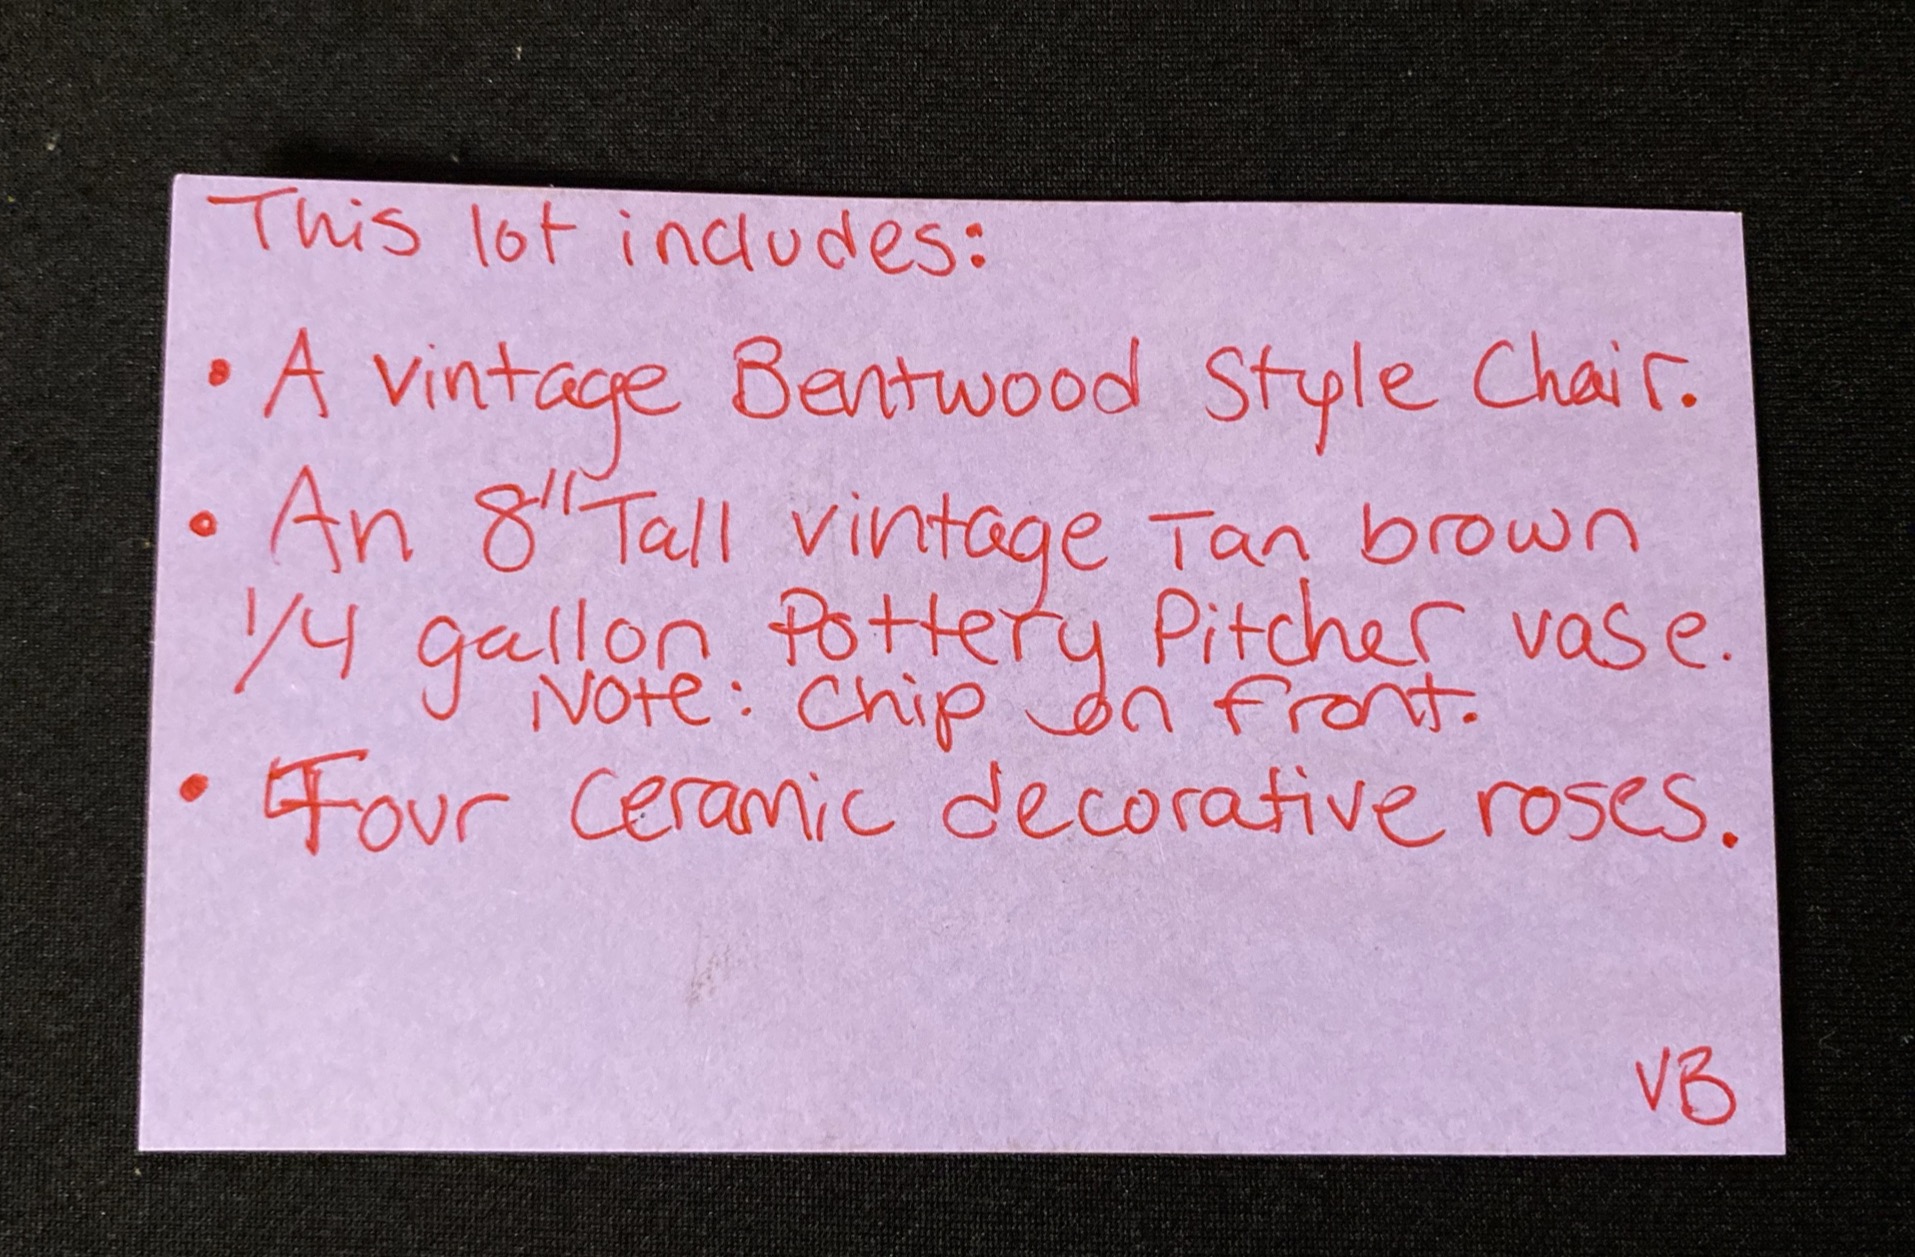 This lot includes:
• A vintage Bentwood Style Chair.
• An 8" Tall vintage Tan brown
1/4 gallon Pottery Pitcher vase.
Note: Chip on front.
• Four Ceramic decorative roses.
VB